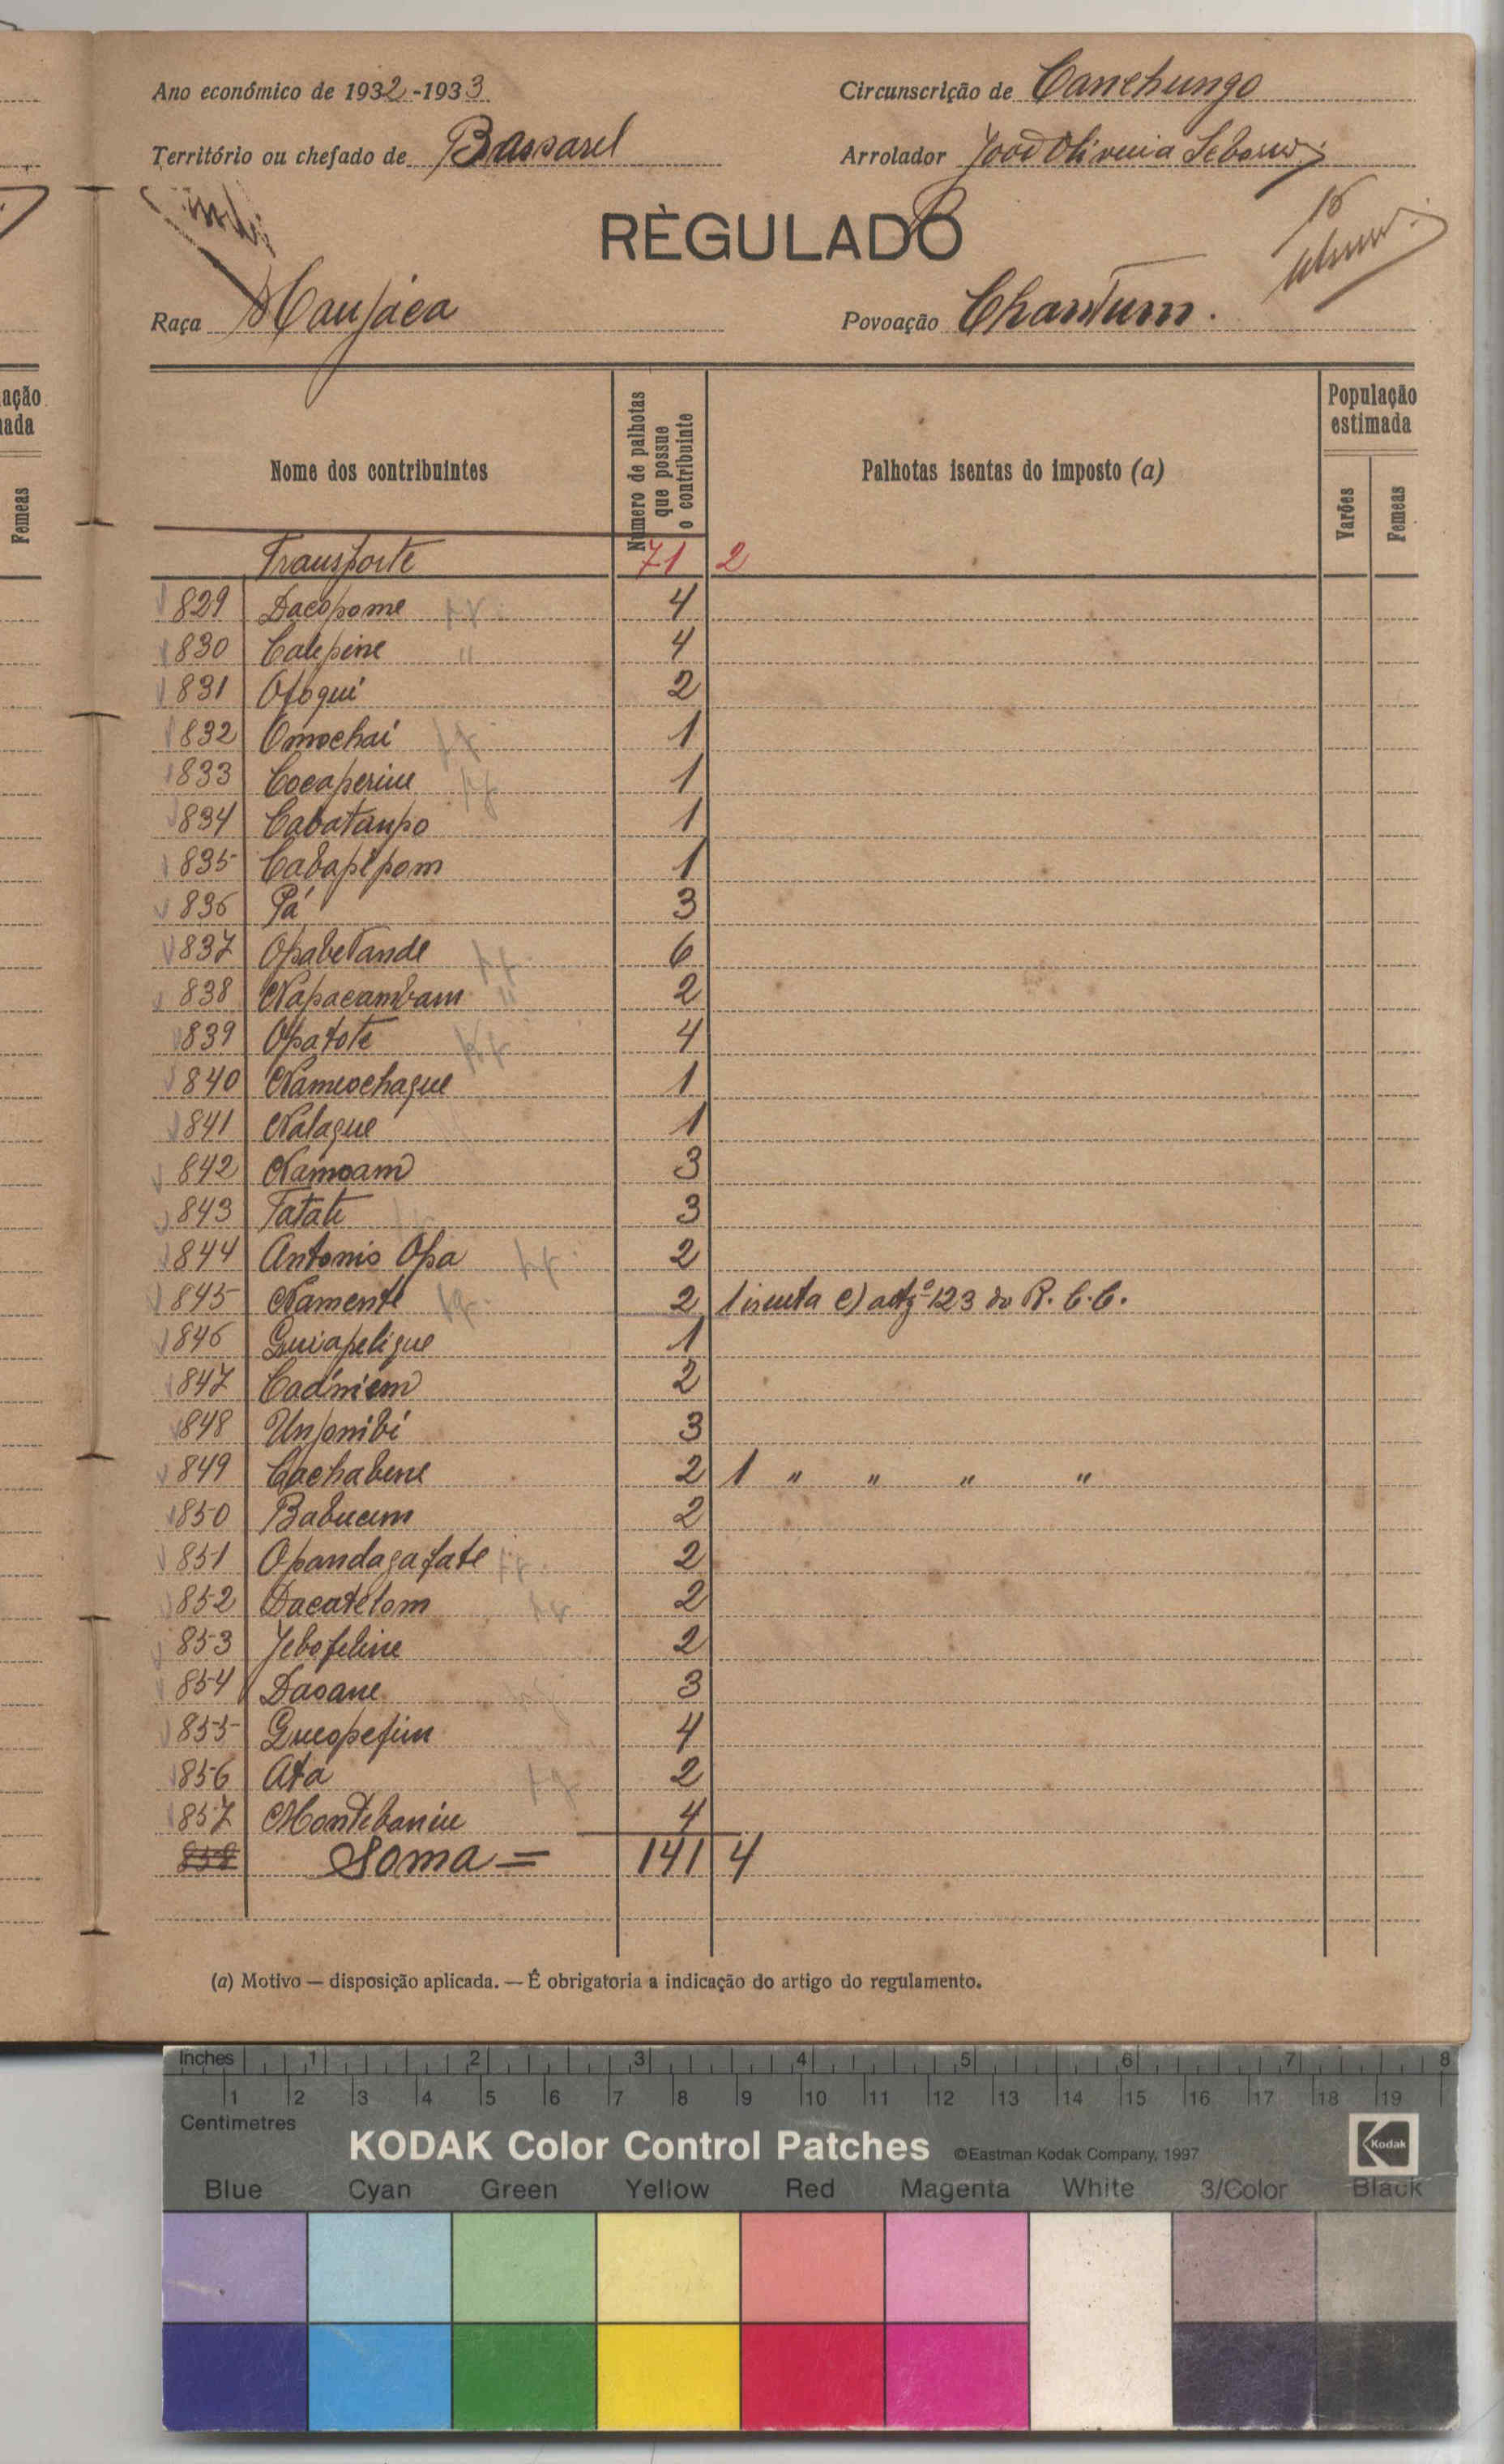 Ano económico de 1932-1933
Circunscrição de Canchungo
Território ou chefado de Bassarel
Arrolador João Oliveira
RÈGULADO
Raça Manjaca
Povoação Chantum.
ação
nada
Femeas
Nome dos contribuintes
Numero de palhotas que possue o contribuinte
Palhotas isentas do imposto (a)
População estimada
Varões
Femeas
Transporte 71 2
829 Dacopome 4
830 Calepine " 4
831 Ofoqui 2
832 Omochai 1
833 Cocaperine 1
834 Cabatanpo 1
835 Cabapepom 1
836 Pá 3
837 Opabetande 6
838 Napacambam " 2
839 Opatote 4
840 Nameochague 1
841 Nalaque 1
842 Namoam 3
843 Tatate 3
844 Antonio Opa 2
845 Namente 2 1 isenta e) artgº 123 do R. C. C.
846 Guiapeligue 1
847 Cadniem 2
848 Unjonibi 3
849 Cachabene 2 1 " " " "
850 Babucum 2
851 Opandagafate 2
852 Dacatelom 2
853 Jebofeline 2
854 Dasane 3
855 Gueopefim 4
856 Ata 2
857 Montebaniu 4
858 Soma = 141 4
(a) Motivo — disposição aplicada. — É obrigatoria a indicação do artigo do regulamento.
Inches 1 2 3 4 5 6 7 8
1 2 3 4 5 6 7 8 9 10 11 12 13 14 15 16 17 18 19
Centimetres
KODAK Color Control Patches ©Eastman Kodak Company, 1997 Kodak
Blue Cyan Green Yellow Red Magenta White 3/Color Black